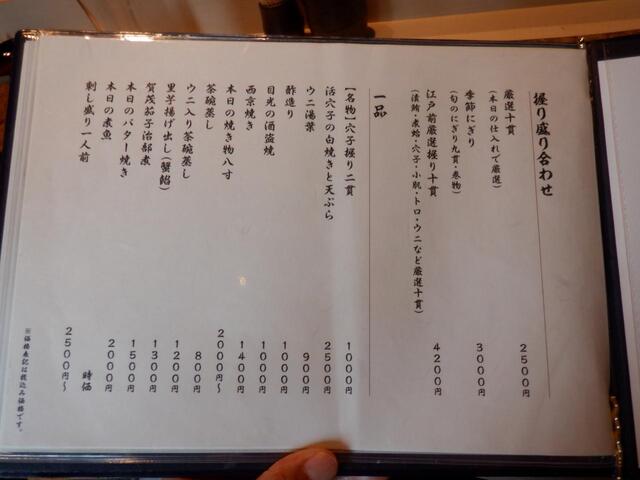 握り盛り合わせ
厳選十貫 2500円
(本日の仕入れで厳選)
季節にぎり 3000円
(旬のにぎり九貫・巻物)
江戸前厳選握り十貫 4200円
(漬鮪・煮蛤・穴子・小肌・トロ・ウニなど厳選十貫)
一品
【名物】穴子握り二貫 1000円
活穴子の白焼きと天ぷら 2500円
ウニ湯葉 900円
酢造り 1000円
目光の酒盗焼 1000円
西京焼き 1400円
本日の焼き物八寸 2000円〜
茶碗蒸し 800円
ウニ入り茶碗蒸し 1200円
里芋揚げ出し(蟹餡) 1300円
賀茂茄子治部煮 1500円
本日のバター焼き 2000円
本日の煮魚 時価
刺し盛り一人前 2500円〜
※価格表記は税込み価格です。